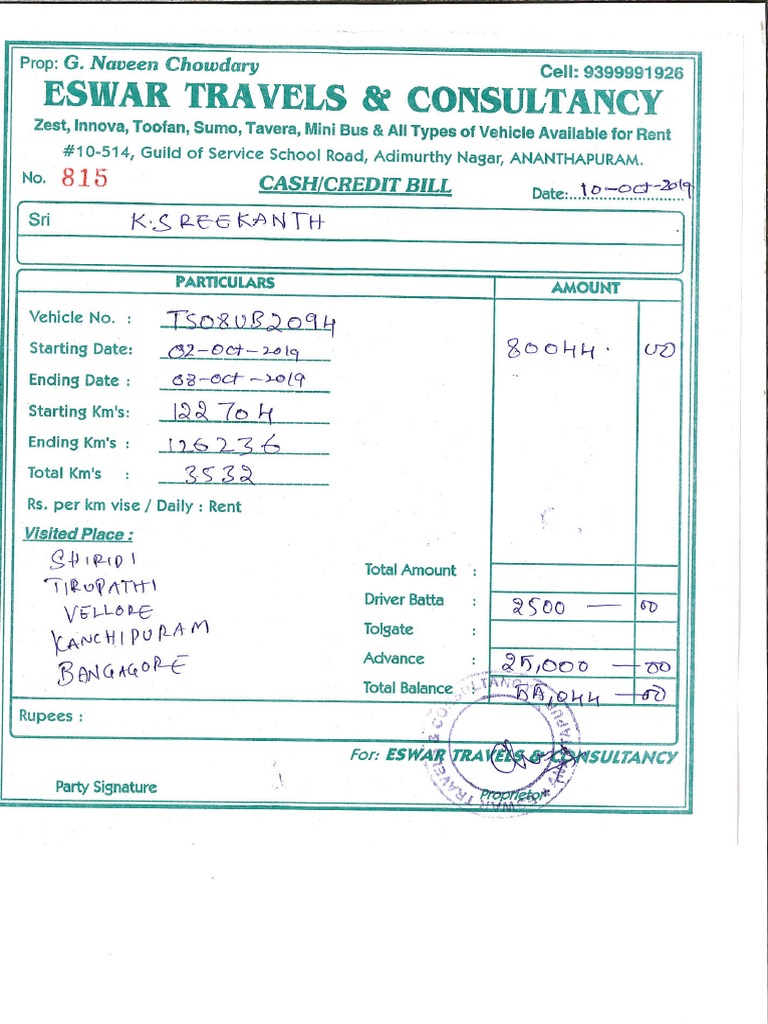 Prop: G. Naveen Chowdary
Cell: 9399991926
ESWAR TRAVELS & CONSULTANCY
Zest, Innova, Toofan, Sumo, Tavera, Mini Bus & All Types of Vehicle Available for Rent
#10-514, Guild of Service School Road, Adimurthy Nagar, ANANTHAPURAM.
No. 815 CASH/CREDIT BILL Date: 10-Oct-2019
Sri K.SREEKANTH
PARTICULARS AMOUNT
Vehicle No. : TS08UB2094
Starting Date: 02-Oct-2019 80044. 00
Ending Date : 08-Oct-2019
Starting Km's: 122704
Ending Km's : 126236
Total Km's : 3532
Rs. per km vise / Daily : Rent
Visited Place :
SHIRIDI
TIRUPATHI
VELLORE
KANCHIPURAM
BANGAGORE
Total Amount :
Driver Batta : 2500 — 00
Tolgate :
Advance : 25,000 — 00
Total Balance 55,044 — 00
Rupees :
For: ESWAR TRAVELS & CONSULTANCY
Party Signature
Proprietor